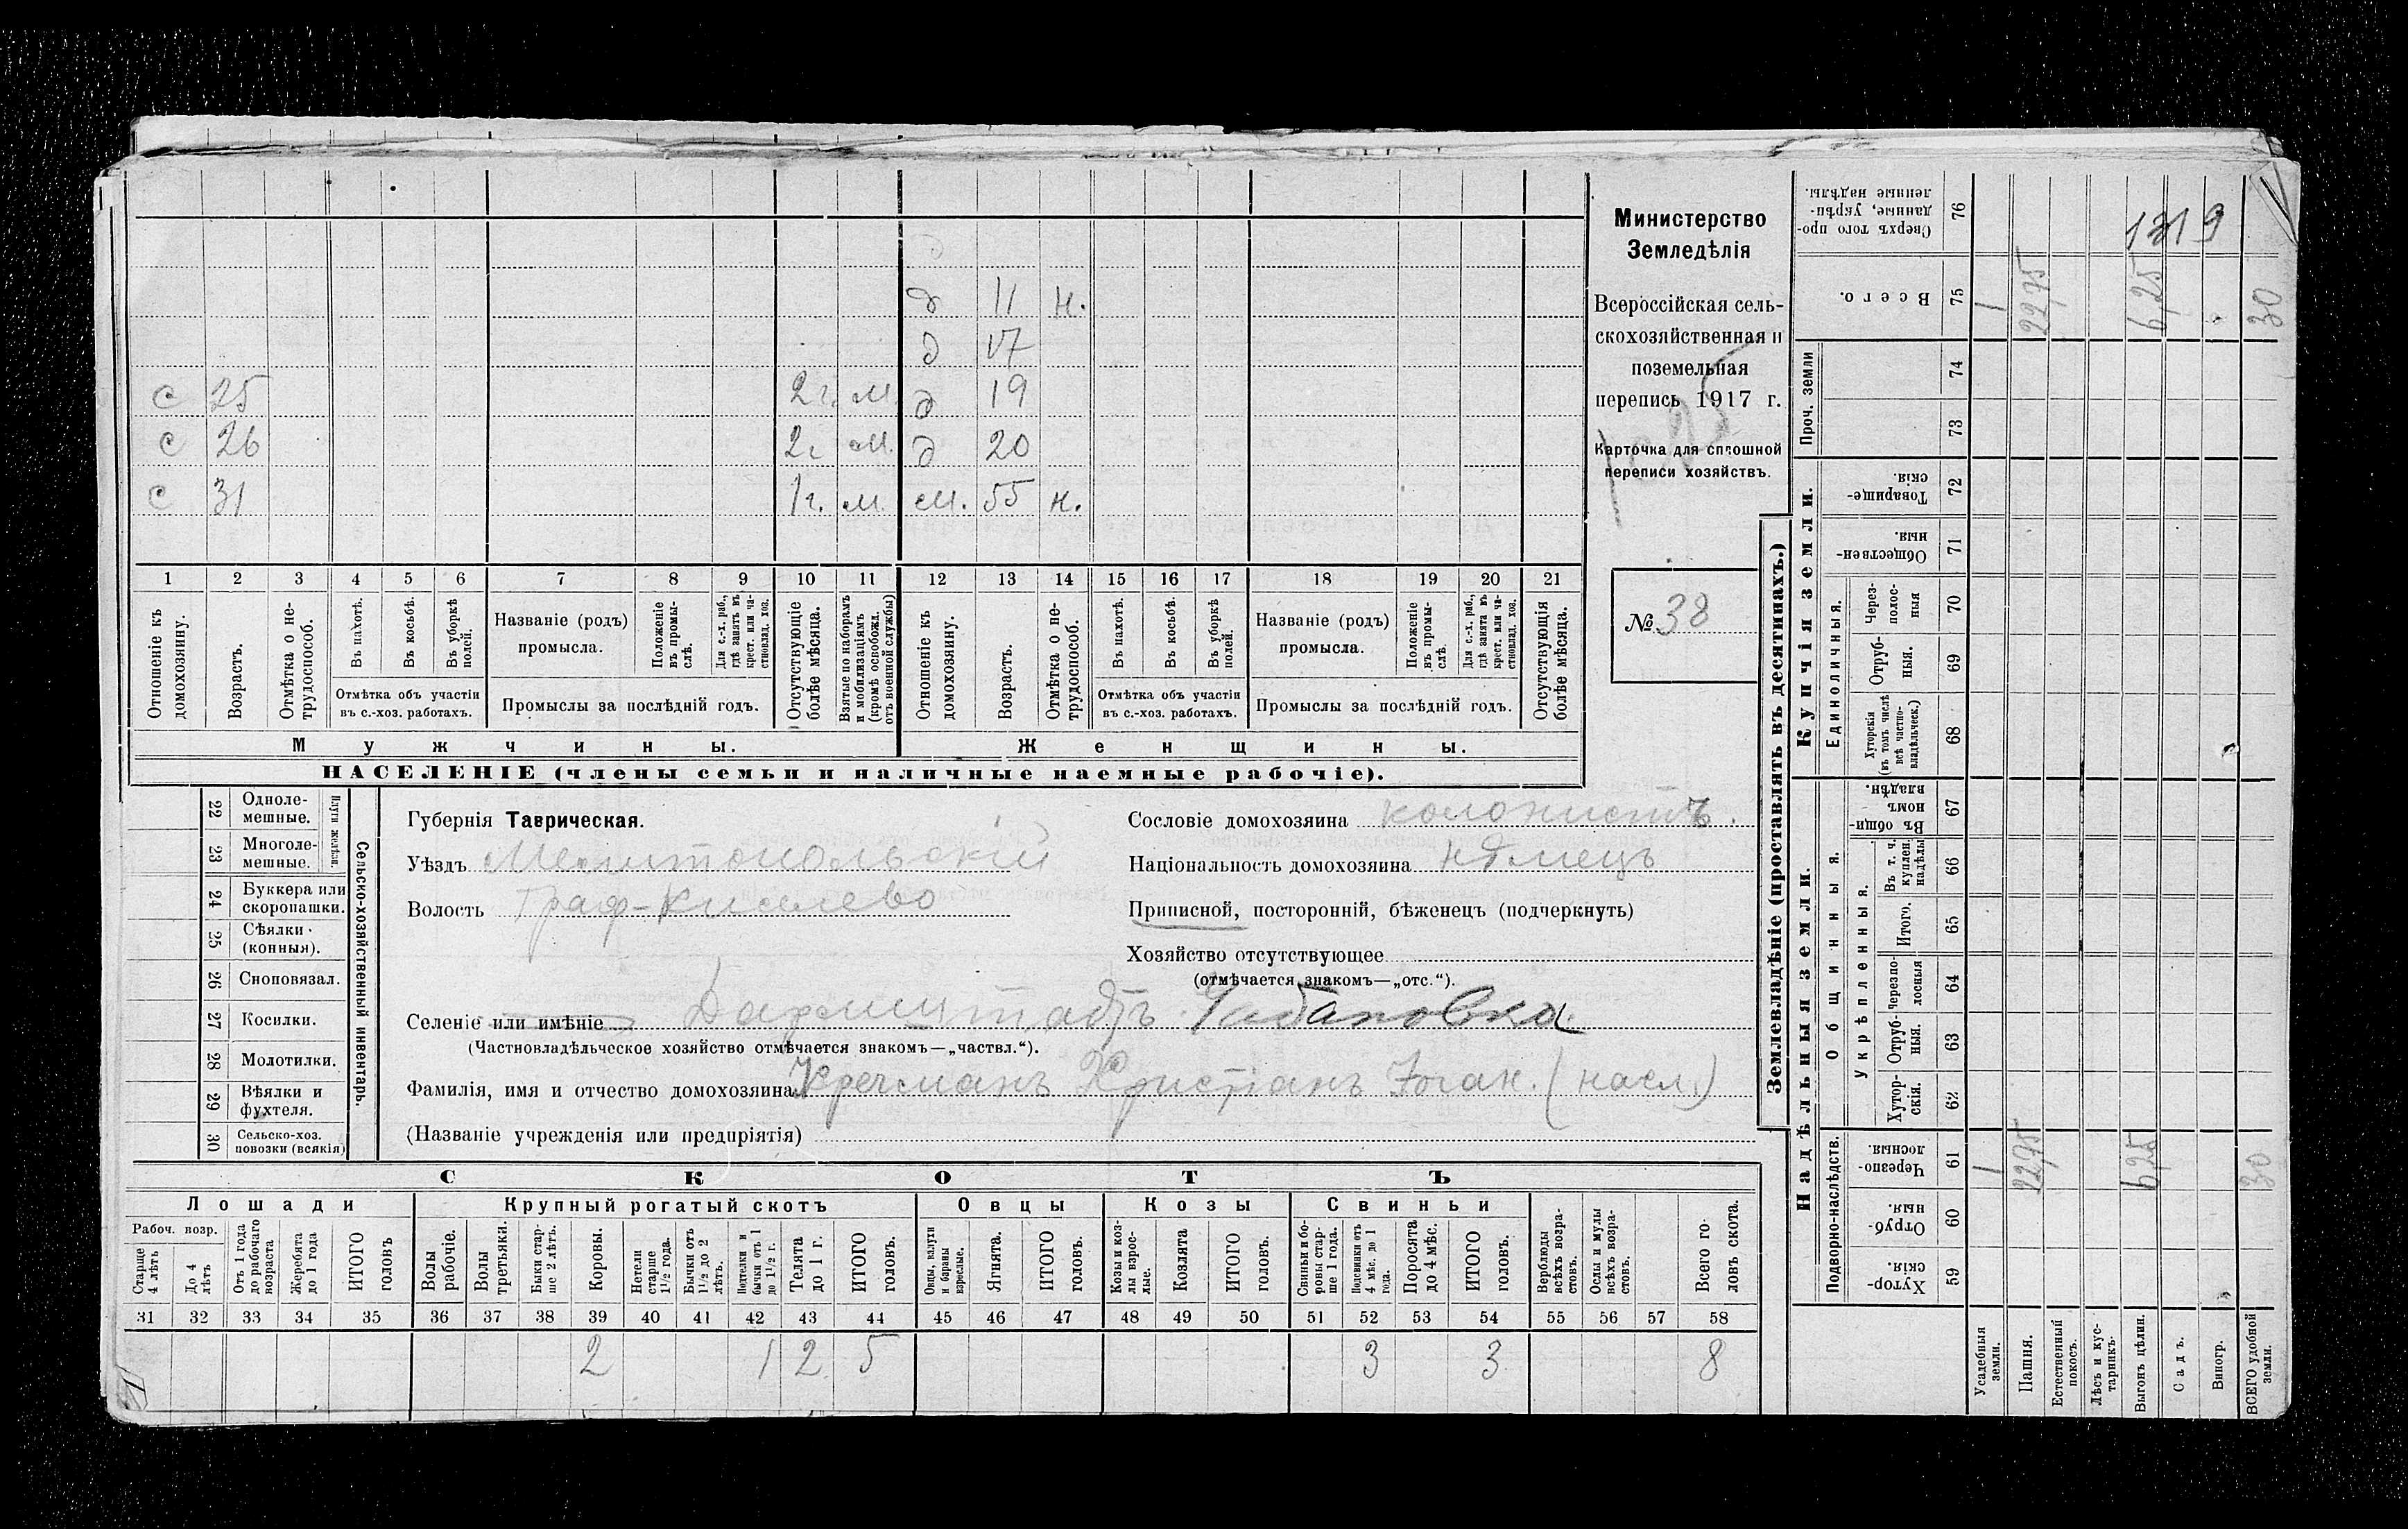 Министерство
Земледѣлія
Всероссійская сель-
скохозяйственная и
поземельная
перепись 1917 г.
Карточка для сплошной
переписи хозяйствъ.
№ 38
д 11 н.
д 17
с 25 2 г. м. д 19
с 26 2 г м. д 20
с 31 1 г. м. м. 55 н.
1 2 3 4 5 6 7 8 9 10 11 12 13 14 15 16 17 18 19 20 21
Отношеніе къ домохозяину.
Возрастъ.
Отмѣтка о не-трудоспособ.
Въ пахотѣ.
Въ косьбѣ.
Въ уборкѣ полей.
Отмѣтка объ участіи
въ с.-хоз. работахъ.
Названіе (родъ)
промысла.
Положеніе въ промы-слѣ.
Для с.-х. раб., гдѣ занятъ въ крест. или ча-стновлад. хоз.
Промыслы за послѣдній годъ.
Отсутствующіе болѣе мѣсяца.
Взятые по наборамъ и мобилизаціямъ (кромѣ освобожд. отъ военной службы)
Отношеніе къ домохозяину.
Возрастъ.
Отмѣтка о не-трудоспособ.
Въ пахотѣ.
Въ косьбѣ.
Въ уборкѣ полей.
Отмѣтка объ участіи
въ с.-хоз. работахъ.
Названіе (родъ)
промысла.
Положеніе въ промы-слѣ.
Для с.-х. раб., гдѣ занята въ крест. или ча-стновлад. хоз.
Промыслы за послѣдній годъ.
Отсутствующія болѣе мѣсяца.
Мужчины.
Женщины.
НАСЕЛЕНІЕ (члены семьи и наличные наемные рабочіе).
Сельско-хозяйственный инвентарь.
Плуги желѣзн
22 Одноле-мешные.
23 Многоле-мешные.
24 Буккера или скоропашки.
25 Сѣялки (конныя).
26 Сноповязал.
27 Косилки.
28 Молотилки.
29 Вѣялки и фухтеля.
30 Сельско-хоз. повозки (всякія)
Губернія Таврическая.
Уѣздъ Мелитопольскій
Волость Граф-Киселево
Сословіе домохозяина колонистъ.
Національность домохозяина нѣмецъ
Приписной, посторонній, бѣженецъ (подчеркнуть)
Хозяйство отсутствующее
(отмѣчается знакомъ—„отс.“).
Селеніе или имѣніе Дармштадтъ Чабановка
(Частновладѣльческое хозяйство отмѣчается знакомъ—„частвл.“).
Фамилія, имя и отчество домохозяина Кречманъ Христіанъ Іоган. (насл.)
(Названіе учрежденія или предпріятія)
СКОТЪ
Лошади
Крупный рогатый скотъ
Овцы
Козы
Свиньи
Рабоч. возр.
Старше 4 лѣтъ
До 4 лѣтъ
Отъ 1 года до рабочаго возраста
Жеребята до 1 года
ИТОГО головъ
Волы рабочіе.
Волы третьяки.
Быки стар-ше 2 лѣтъ.
Коровы.
Нетели старше 1 1/2 года.
Бычки отъ 1 1/2 до 2 лѣтъ.
Подтелки и бычки отъ 1 до 1 1/2 г.
Телята до 1 г.
ИТОГО головъ.
Овцы, валухи и бараны взрослые.
Ягнята.
ИТОГО головъ.
Козы и коз-лы взрос-лые.
Козлята
ИТОГО головъ.
Свиньи и бо-ровы стар-ше 1 года.
Подсвинки отъ 4 мѣс. до 1 года.
Поросята до 4 мѣс.
ИТОГО головъ.
Верблюды всѣхъ возра-стовъ.
Ослы и мулы всѣхъ возра-стовъ.
Всего го-ловъ скота.
31 32 33 34 35 36 37 38 39 40 41 42 43 44 45 46 47 48 49 50 51 52 53 54 55 56 57 58
2 1 2 5 3 3 8
Землевладѣніе (проставлять въ десятинахъ.)
Надѣльныя земли.
Купчія земли.
Проч. земли
Подворно-наслѣдств.
Общинныя.
Укрѣпленныя.
Единоличныя.
76 Сверхъ того про-данные, укрѣп-ленные надѣлы.
75 Всего.
74
73
72 Товарище-скія.
71 Обществен-ныя.
70 Через-полос-ныя
69 Отруб-ныя.
68 Хуторскія (въ томъ числѣ всѣ частно-владѣльческ.)
67 Въ общин-номъ владѣн.
66 Въ т. ч. куплен. надѣлы
65 Итого.
64 Черезпо-лосныя
63 Отруб-ныя.
62 Хутор-скія.
61 Черезпо-лосныя.
60 Отруб-ныя.
59 Хутор-скія.
Усадебныя земли.
Пашня.
Естественный покосъ.
Лѣсъ и кус-тарникъ.
Выгонъ цѣлин.
Садъ.
Виногр.
ВСЕГО удобной земли.
1 22,75 6,25 30
1 22,75 6,25 30